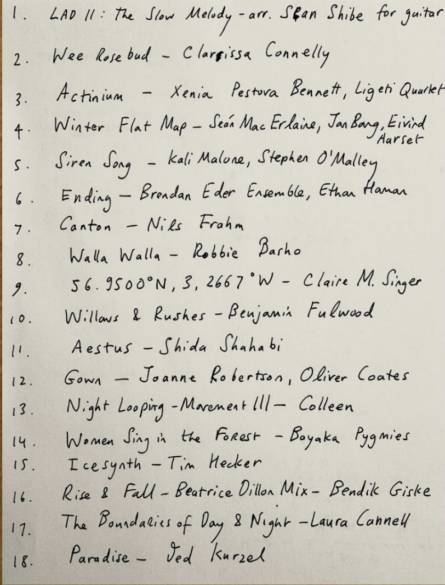 1. LAD II: The Slow Melody - arr. Sean Shibe for guitar
2. Wee Rosebud - Clarissa Connelly
3. Actinium - Xenia Pestova Bennett, Ligeti Quartet
4. Winter Flat Map - Seán Mac Erlaine, Jan Bang, Eivind
Aarset
5. Siren Song - Kali Malone, Stephen O'Malley
6. Ending - Brendan Eder Ensemble, Ethan Haman
7. Canton - Nils Frahm
8. Walla Walla - Robbie Basho
9. 56.9500°N, 3,2667°W - Claire M. Singer
10. Willows & Rushes - Benjamin Fulwood
11. Aestus - Shida Shahabi
12. Gown - Joanne Robertson, Oliver Coates
13. Night Looping - Movement III - Colleen
14. Women Sing in the Forest - Bayaka Pygmies
15. Icesynth - Tim Hecker
16. Rise & Fall - Beatrice Dillon Mix - Bendik Giske
17. The Boundaries of Day & Night - Laura Cannell
18. Paradise - Jed Kurzel